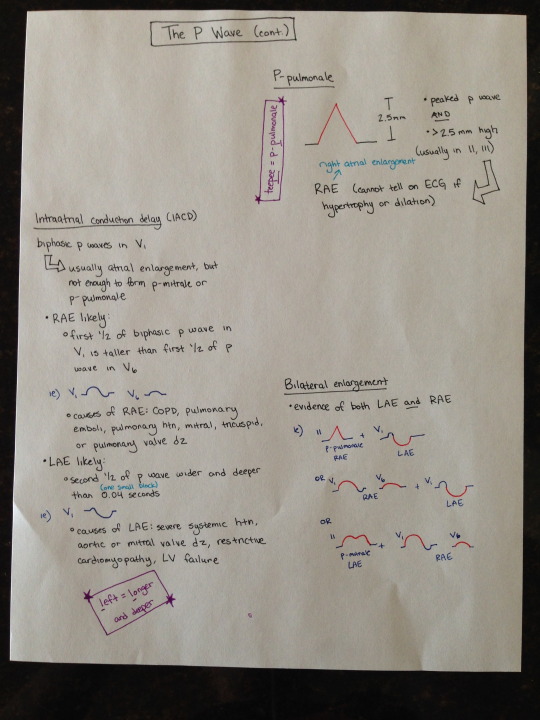 The P Wave (cont.)
P-pulmonale
teepee = p-pulmonale
2.5mm
• peaked p wave
AND
• >2.5mm high
(usually in II, III)
right atrial enlargement
RAE (cannot tell on ECG if
hypertrophy or dilation)
Intraatrial conduction delay (IACD)
biphasic p waves in V1
usually atrial enlargement, but
not enough to form p-mitrale or
p-pulmonale
• RAE likely:
° first 1/2 of biphasic p wave in
V1 is taller than first 1/2 of p
wave in V6
ie) V1 V6
° causes of RAE: COPD, pulmonary
emboli, pulmonary htn, mitral, tricuspid,
or pulmonary valve dz
• LAE likely:
° second 1/2 of p wave wider and deeper
(one small block)
than 0.04 seconds
ie) V1
° causes of LAE: severe systemic htn,
aortic or mitral valve dz, restrictive
cardiomyopathy, LV failure
left = longer
and deeper
Bilateral enlargement
• evidence of both LAE and RAE
ie) II + V1
P-pulmonale
RAE
LAE
OR V1 V6 + V1
RAE
LAE
OR
II + V1 V6
P-mitrale
LAE
RAE